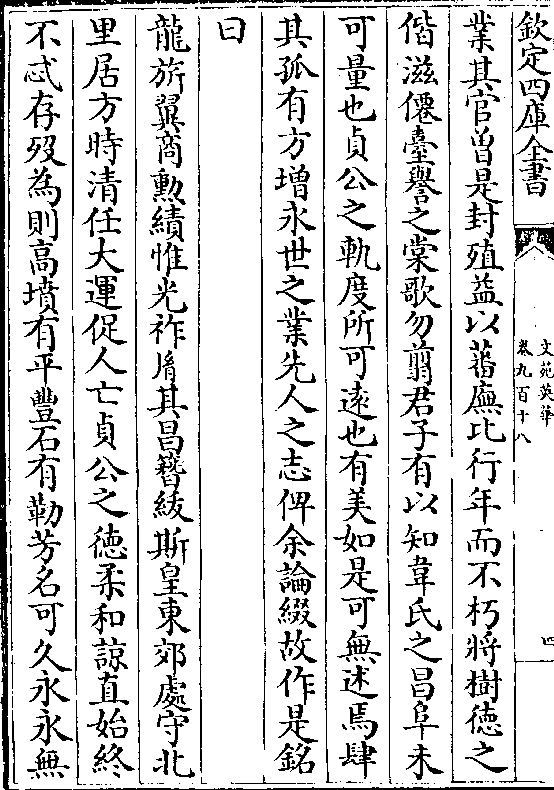 欽定四庫全書
文苑英華
卷九百十八
四
業其官曽是封殖益以蕃廡比行年而不朽將樹徳之
偕滋僊臺譽之棠歌勿翦君子有以知韋氏之昌阜未
可量也貞公之軌度所可逺也有美如是可無述焉肆
其孤有方増永世之業先人之志俾余論綴故作是銘
曰
龍旂翼商勲績惟光祚𦙍其昌簪紱斯皇東郊處守北
里居方時清任大運促人亡貞公之徳柔和諒直始終
不忒存殁為則高墳有平豐石有勒芳名可久永永無